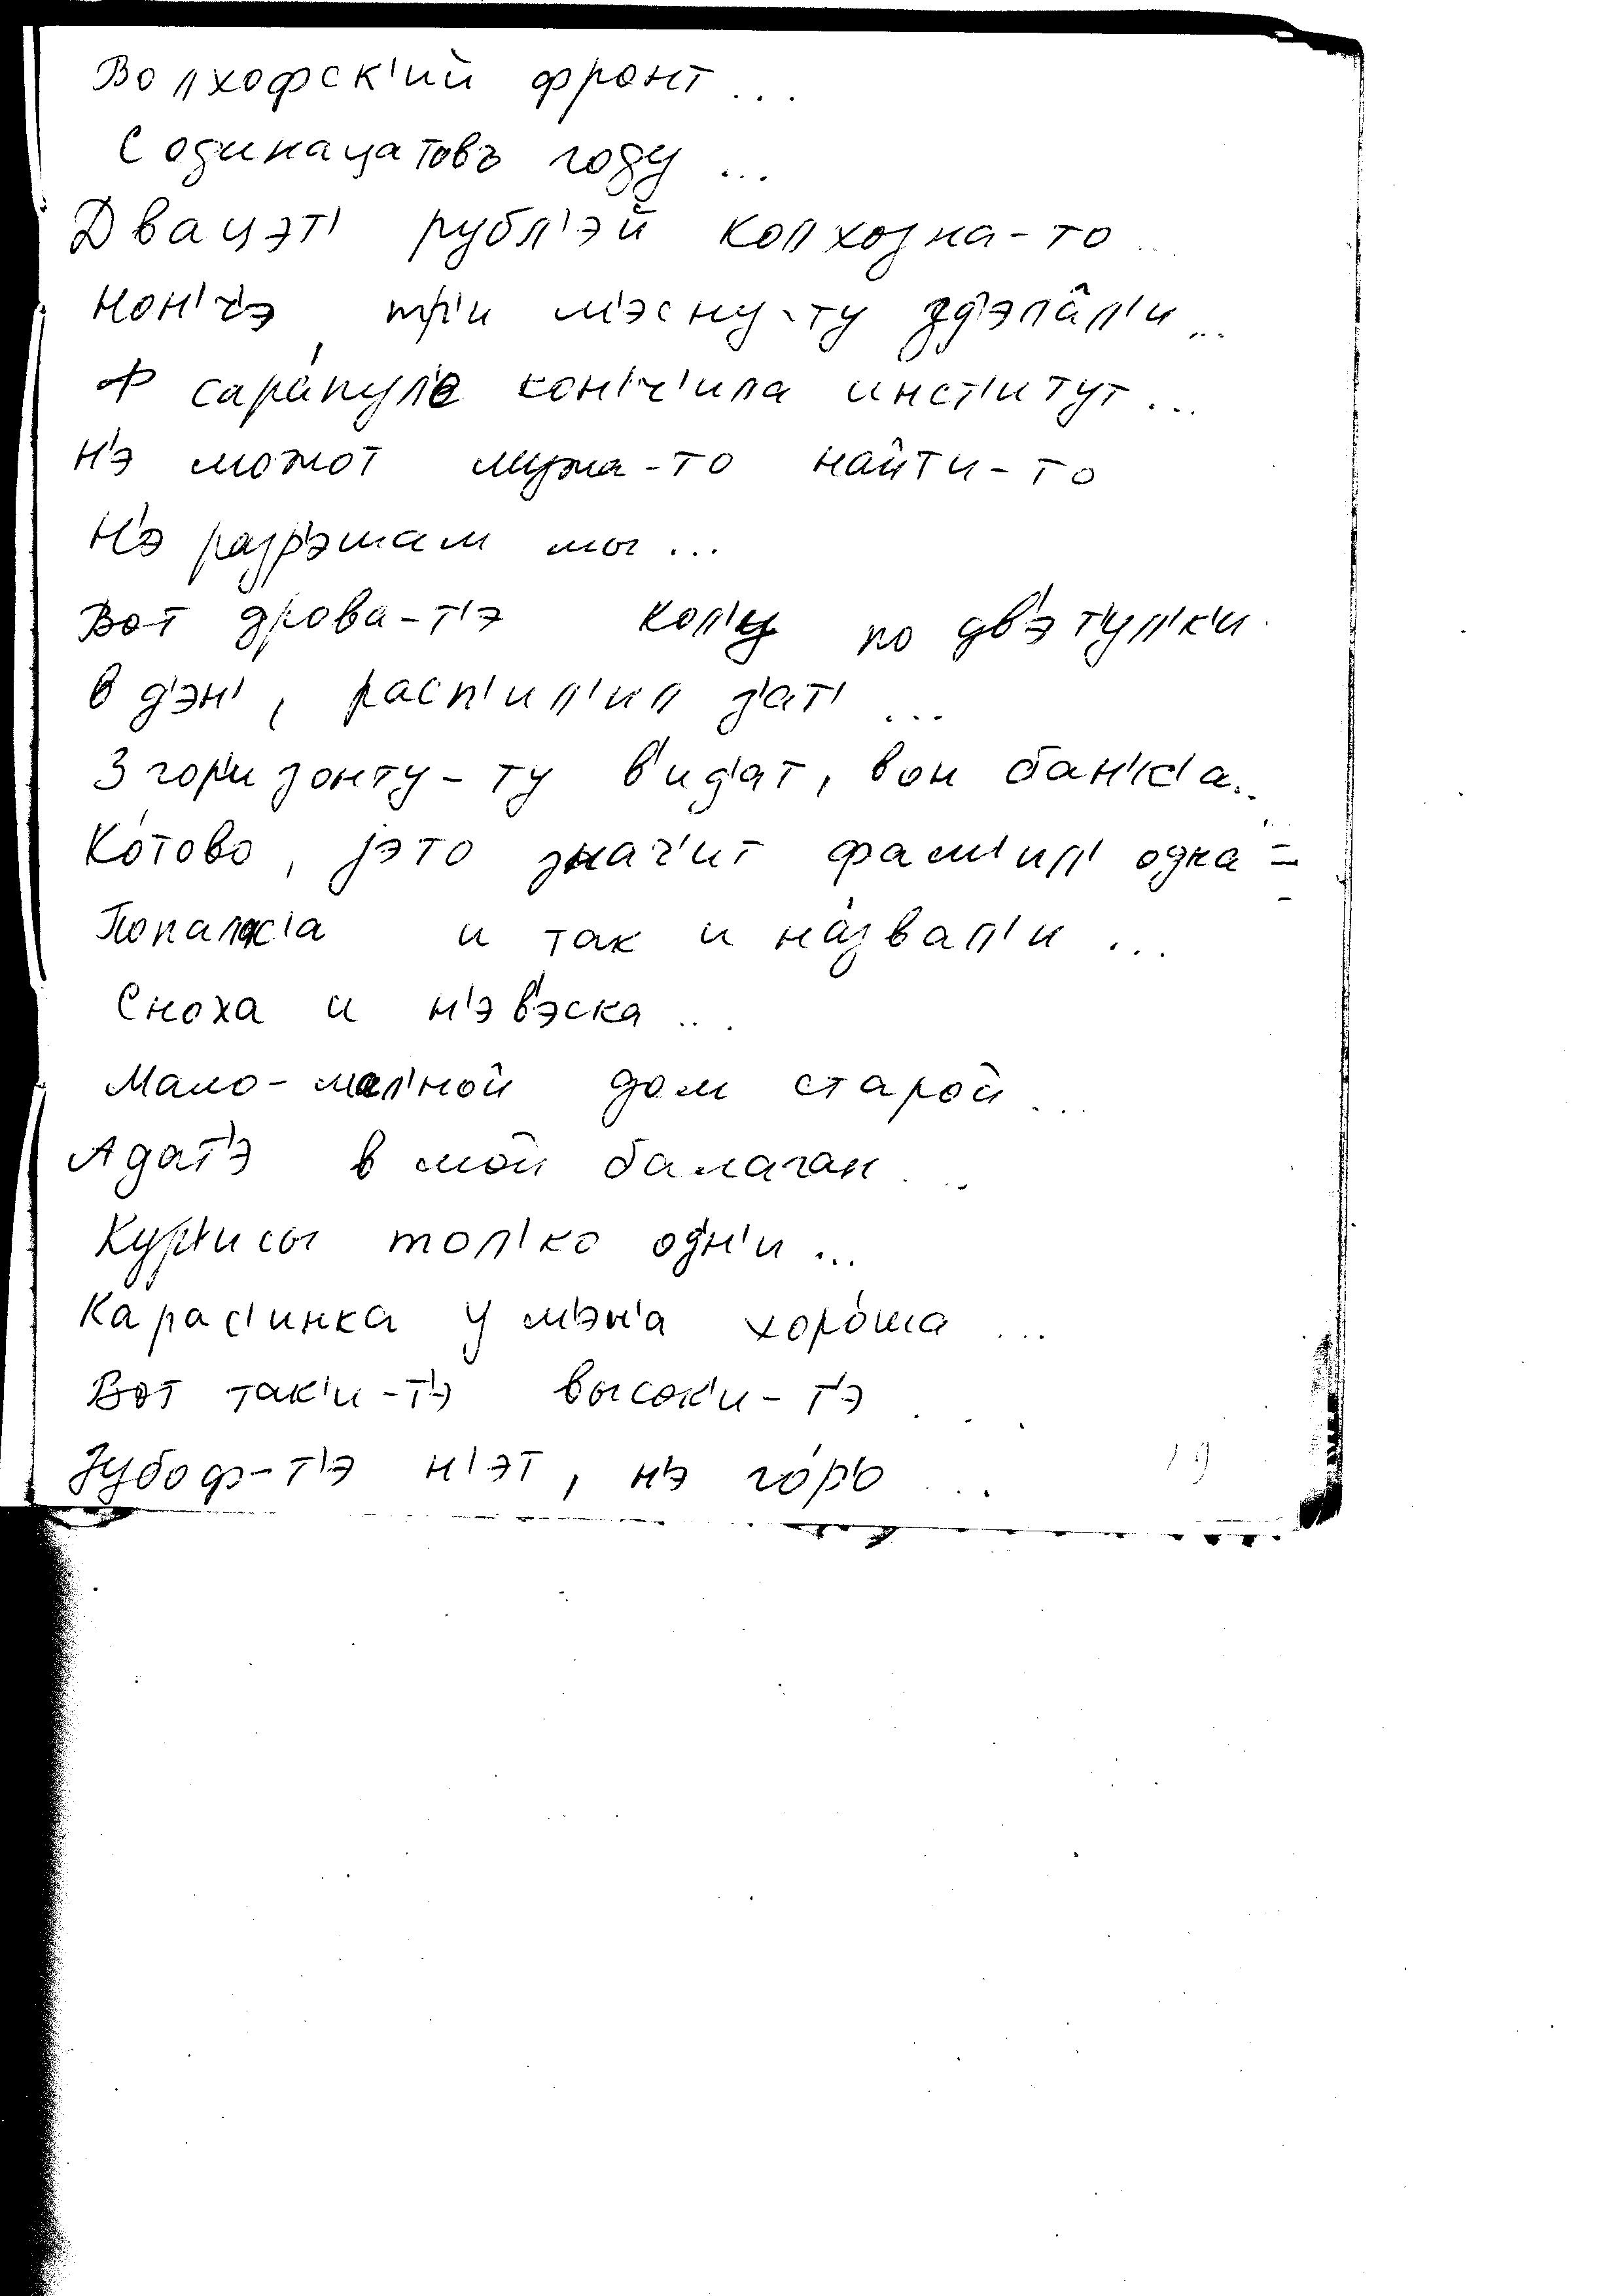 Волхофск'ий фронт ...
Содинацатовъ году ...
Двацэт' рубл'эй колхозна-то ..
Нон'ч'э, тр'и м'эсну-ту зд'эла̂л'и ...
Ф сара́пул'е кон'ч'ила инст'итут ...
Н'э можот мужа-то найти-то
Н'э разр'эшам мы ...
Вот дрова-т'э кол'у по дв'э т'ул'к'и.
в д'эн', расп'ил'ил з'ат' ...
З гор'изонту-ту в'ид'ат, вон бан'к'а..
Ко́тово, jэто значи'т фам'ил' одна =
Попалас'а и так и на́звал'и ...
Сноха и н'эв'эска ...
Мало-мал'ной дом старой ...
Адат'э в мой балаган ...
Кур'исы тол'ко одн'и ...
Карас'инка у м'эн'а хоро́ша ...
Вот так'и-т'э высок'и-т'э ...
Зубоф-т'э н'эт, н'э го́р'о ...
19